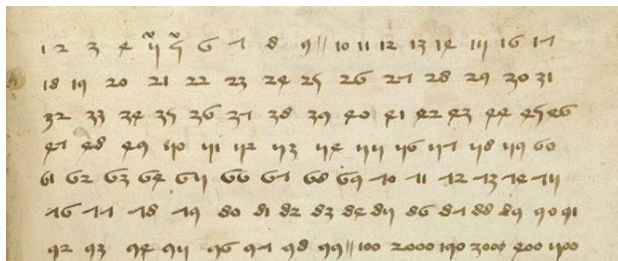 1 2 3 4 5 5 6 7 8 9 // 10 11 12 13 14 15 16 17
18 19 20 21 22 23 24 25 26 27 28 29 30 31
32 33 34 35 36 37 38 39 40 41 42 43 44 45 46
47 48 49 50 51 52 53 54 55 56 57 58 59 60
61 62 63 64 65 66 67 68 69 70 71 72 73 74 75
76 77 78 79 80 81 82 83 84 85 86 87 88 89 90 91
92 93 94 95 96 97 98 99 // 100 2000 190 3000 400 500